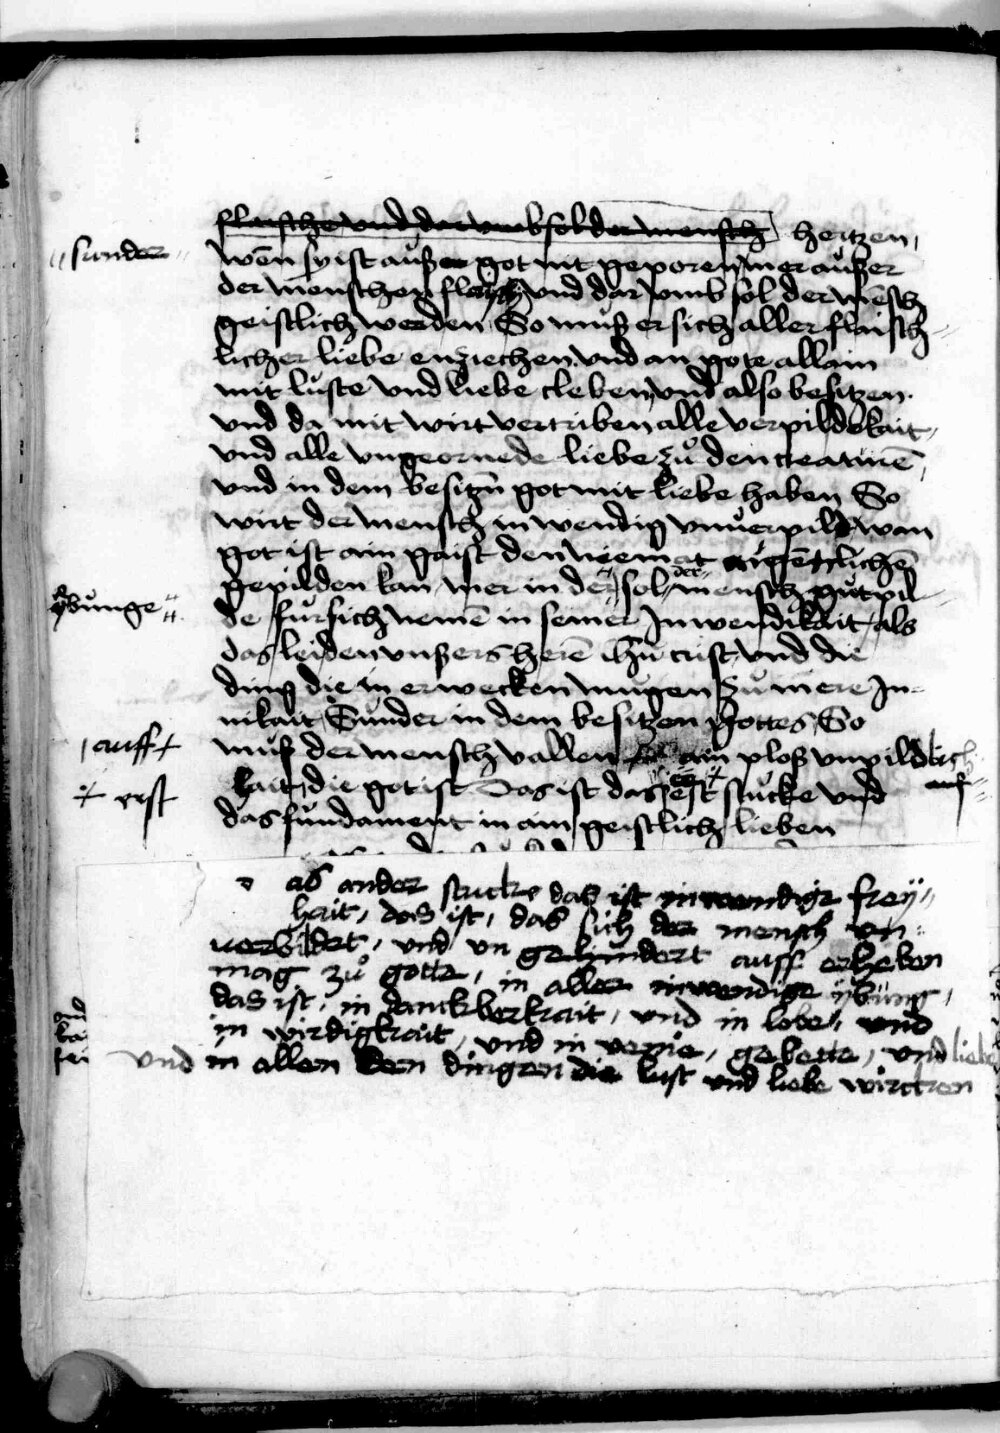 flaische und dar umb sol der mensch hertzen,
sunder
wēn sy ist auß got nit geporen mer außer
der menschen flaisch und dar umb sol der mēsch
geistlich werden So muß er sich aller flaisch
licher liebe enziechen und an gote allain
mit luste und liebe cleben und also besitzen.
und da mit wirt vertriben alle verpildekait
und alle ungeornede liebe zů den creaturē
und in dem besitzn got mit liebe haben So
wirt der mensch inwendig unuerpild wan
got ist ain gaist den niemat aigentlichē
gepilden kan mer in der sol der mensch gut pil
ybunge
de fur sich nemē in seiner Inwendikait, als
das leiden unßers herē ihū crist und die
ding die in erwecken mugen zů mere In
nikait Sunder in dem besitzen gottes So
auff
muß der mensch vallen ain ploß unpildlich
kait, die got ist Das ist das erst stucke und
auf
rest
das fundament in aim geistlich lieben
as ander stucke das ist inwendige frey
hait, das ist, das sich der mensch un
uerbildet, und un gehindert auff erheben
mag zů gotte, in aller inwendige ÿbung,
das ist, in danckberkait, und in lobe, und
in wirdigkait, und in gebette, und liebe
und in allen den dingen die lust und liebe wircken